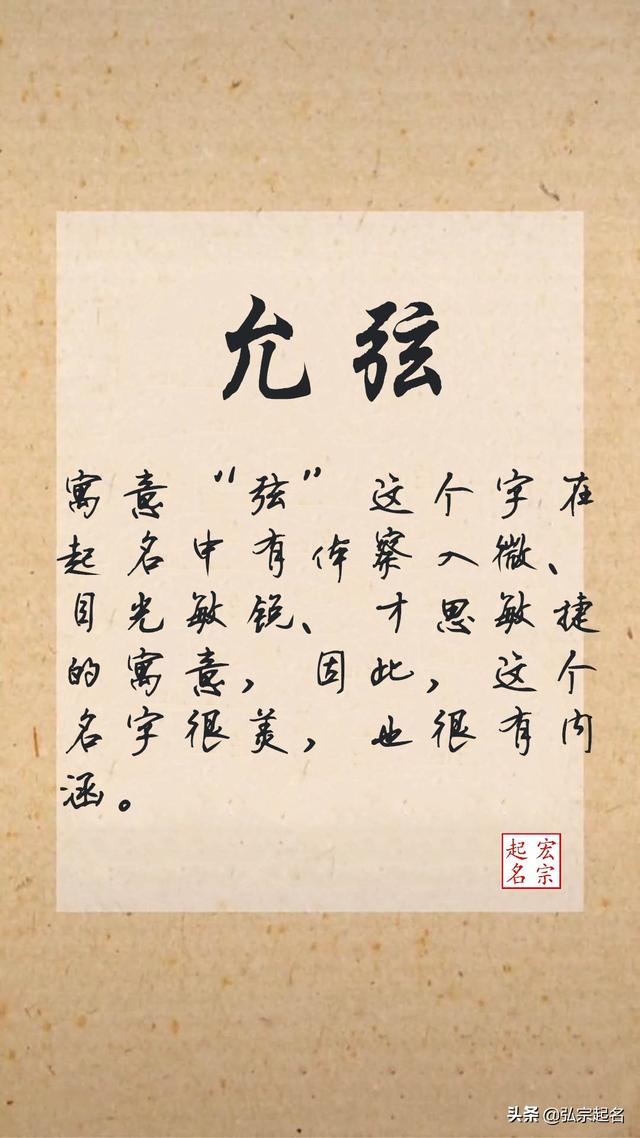 允弦
寓意“弦”这个字在
起名中有体察入微、
目光敏锐、才思敏捷
的寓意，因此，这个
名字很美，也很有内
涵。
宏宗
起名
头条 @弘宗起名